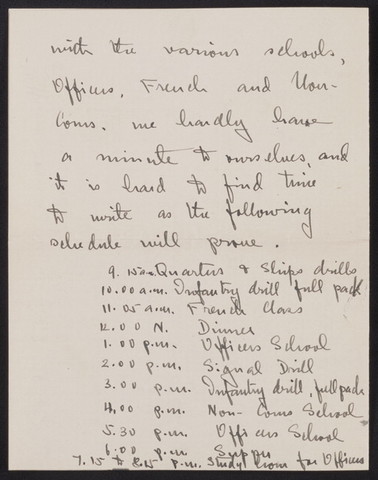 with the various schools,
Officers, French and Non-
Coms. we hardly have
a minute to ourselves, and
it is hard to find time
to write as the following
schedule will prove.
9.15 a.m. Quarters & Ships drills
10.00 a.m. Infantry drill full pack
11.05 a.m. French Class
12.00 N. Dinner
1.00 p.m. Officers School
2.00 p.m. Signal Drill
3.00 p.m. Infantry drill, full pack
4.00 p.m. Non-Coms School
5.30 p.m. Officers School
6.00 p.m. Supper
7.15 to 8.15 p.m. Study hour for Officers